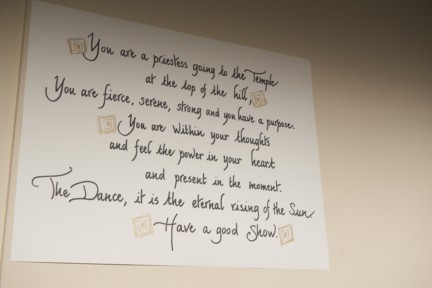 You are a priestess going to the Temple
at the top of the hill,
You are fierce, serene, strong and you have a purpose.
You are within your thoughts
and feel the power in your heart
and present in the moment.
The Dance, it is the eternal rising of the Sun
Have a good Show.